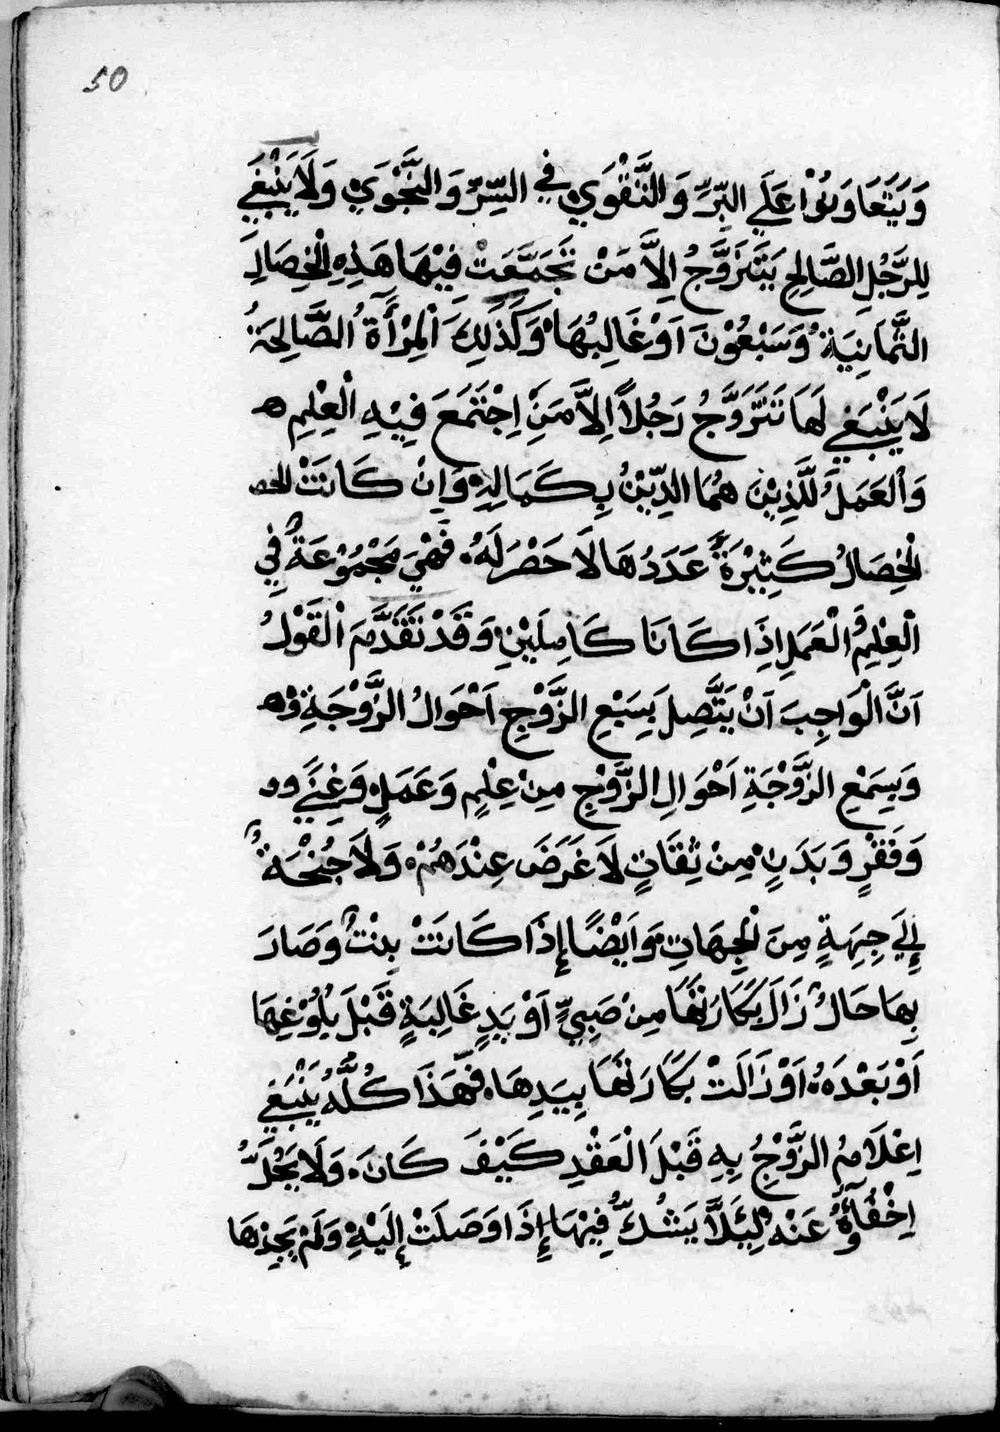 50
وَيَتَعَاوَنُوْا عَلَي الْبِّرِّ وَالتَّقْوَي فِي السِّرِّ وَالنَّجْوَي وَلَا يَنْبَغِي
لِلرَّجُلِ الصَّالِحِ يَتَزَوَّجُ اِلَّا مَنْ تَجَمَّعَتْ فِيْهَا هَذِهِ الْخِصَالِ
الثَّمَانِيَةُ وَسَبْعُوْنَ اَوْ غَالِبُهَا وَكَذَلِكَ الْمِرْأَةُ الصَّالِحَةُ
لَا يَنْبَغِي لَهَا تَتَزَوَّجُ رَجُلاً اِلَّا مَنِ اجْتَمَعَ فِيْهِ الْعِلْمِ
وَالْعَمَلُ لَّلذِيْنَ هُمَا الدِّيْنُ بِكَمَالِهِ وَاِنْ كَانَتْ الخصـ
الْخِصَالُ كَثِيْرَةً عَدَدُهَا لَا حَصْرَ لَهُ فَهْيَ مَجْمُوْعَةٌ فِي
الْعِلْمِ وَالْعَمَلِ اِذَا كَانَا كَامِلَيْنِ وَقَدْ تَقَدَّمَ الْقَوْلُ
اَنَّ الْوَاجِبَ اَنْ يَتَّصِلَ بِسَمْعِ الزَّوْجِ اَحْوَالُ الزَّوْجَةِ
وَبِسَمْعِ الزَّوْجَةِ اَحْوَالِ الزَّوْجِ مِنْ عِلْمٍ وَعَمَلٍ وَغِنًي
وَفَقْرٍ وَبَدَنٍ مِنْ ثِقَاتٍ لَا غَرَضَ عِنْدَهُمْ وَلَا جُنْحَةٌ
إِلَي جِهَةٍ مِنَ الْجِهَاتِ وَاَيْضًا إِذَا كَانَتْ بِنْتٌ وَصَارَ
بِهَا حَالٌ زَالَ بَكَارَتُهَا مِنْ صَبِيٍّ اَوْ يَدٍ غَالِبَةٍ قَبْلَ بُلُوْغِهَا
اَوْ بَعْدَهُ اَوْ زَالَتْ بَكَارَتُهَا بِيَدِهَا فَهَذَا كُلُّهُ يَنْبَغِي
اِعْلَامُ الزَّوْجِ بِهِ قَبْلَ الْعَقْدِ كَيْفَ كَانَ وَلَا يَحِلُّ
اِخْفَآؤُهُ عَنْهُ لِئَلَّا يَشُكَّ فِيْهَا إِذَا وَصَلَتْ إِلَيْهِ وَلَمْ يَجِدْهَا